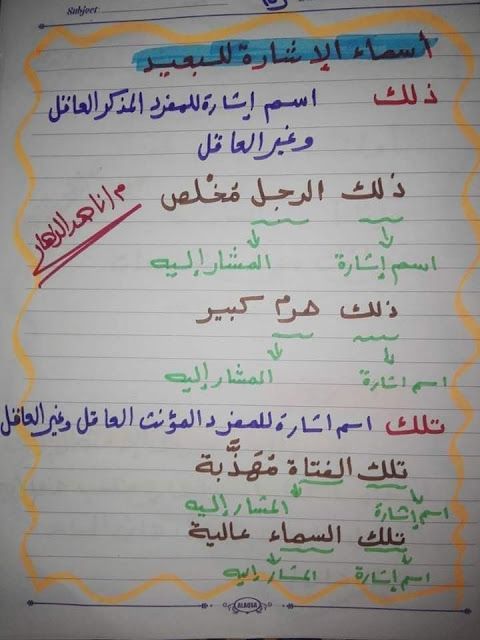 Subject:
أسماء الإشارة للبعيد
ذلك اسم إشارة للمفرد المذكر العاقل
وغير العاقل
ذلك الرجل مُخْلص
اسم إشارة المشار إليه
ذلك هرم كبير
اسم إشارة المشار إليه
تلك اسم اشارة للمفرد المؤنث العاقل وغير العاقل
تلك الفتاة مُهَذَّبة
اسم إشارة المشار إليه
تلك السماء عالية
اسم إشارة المشار إليه
ALAQSA